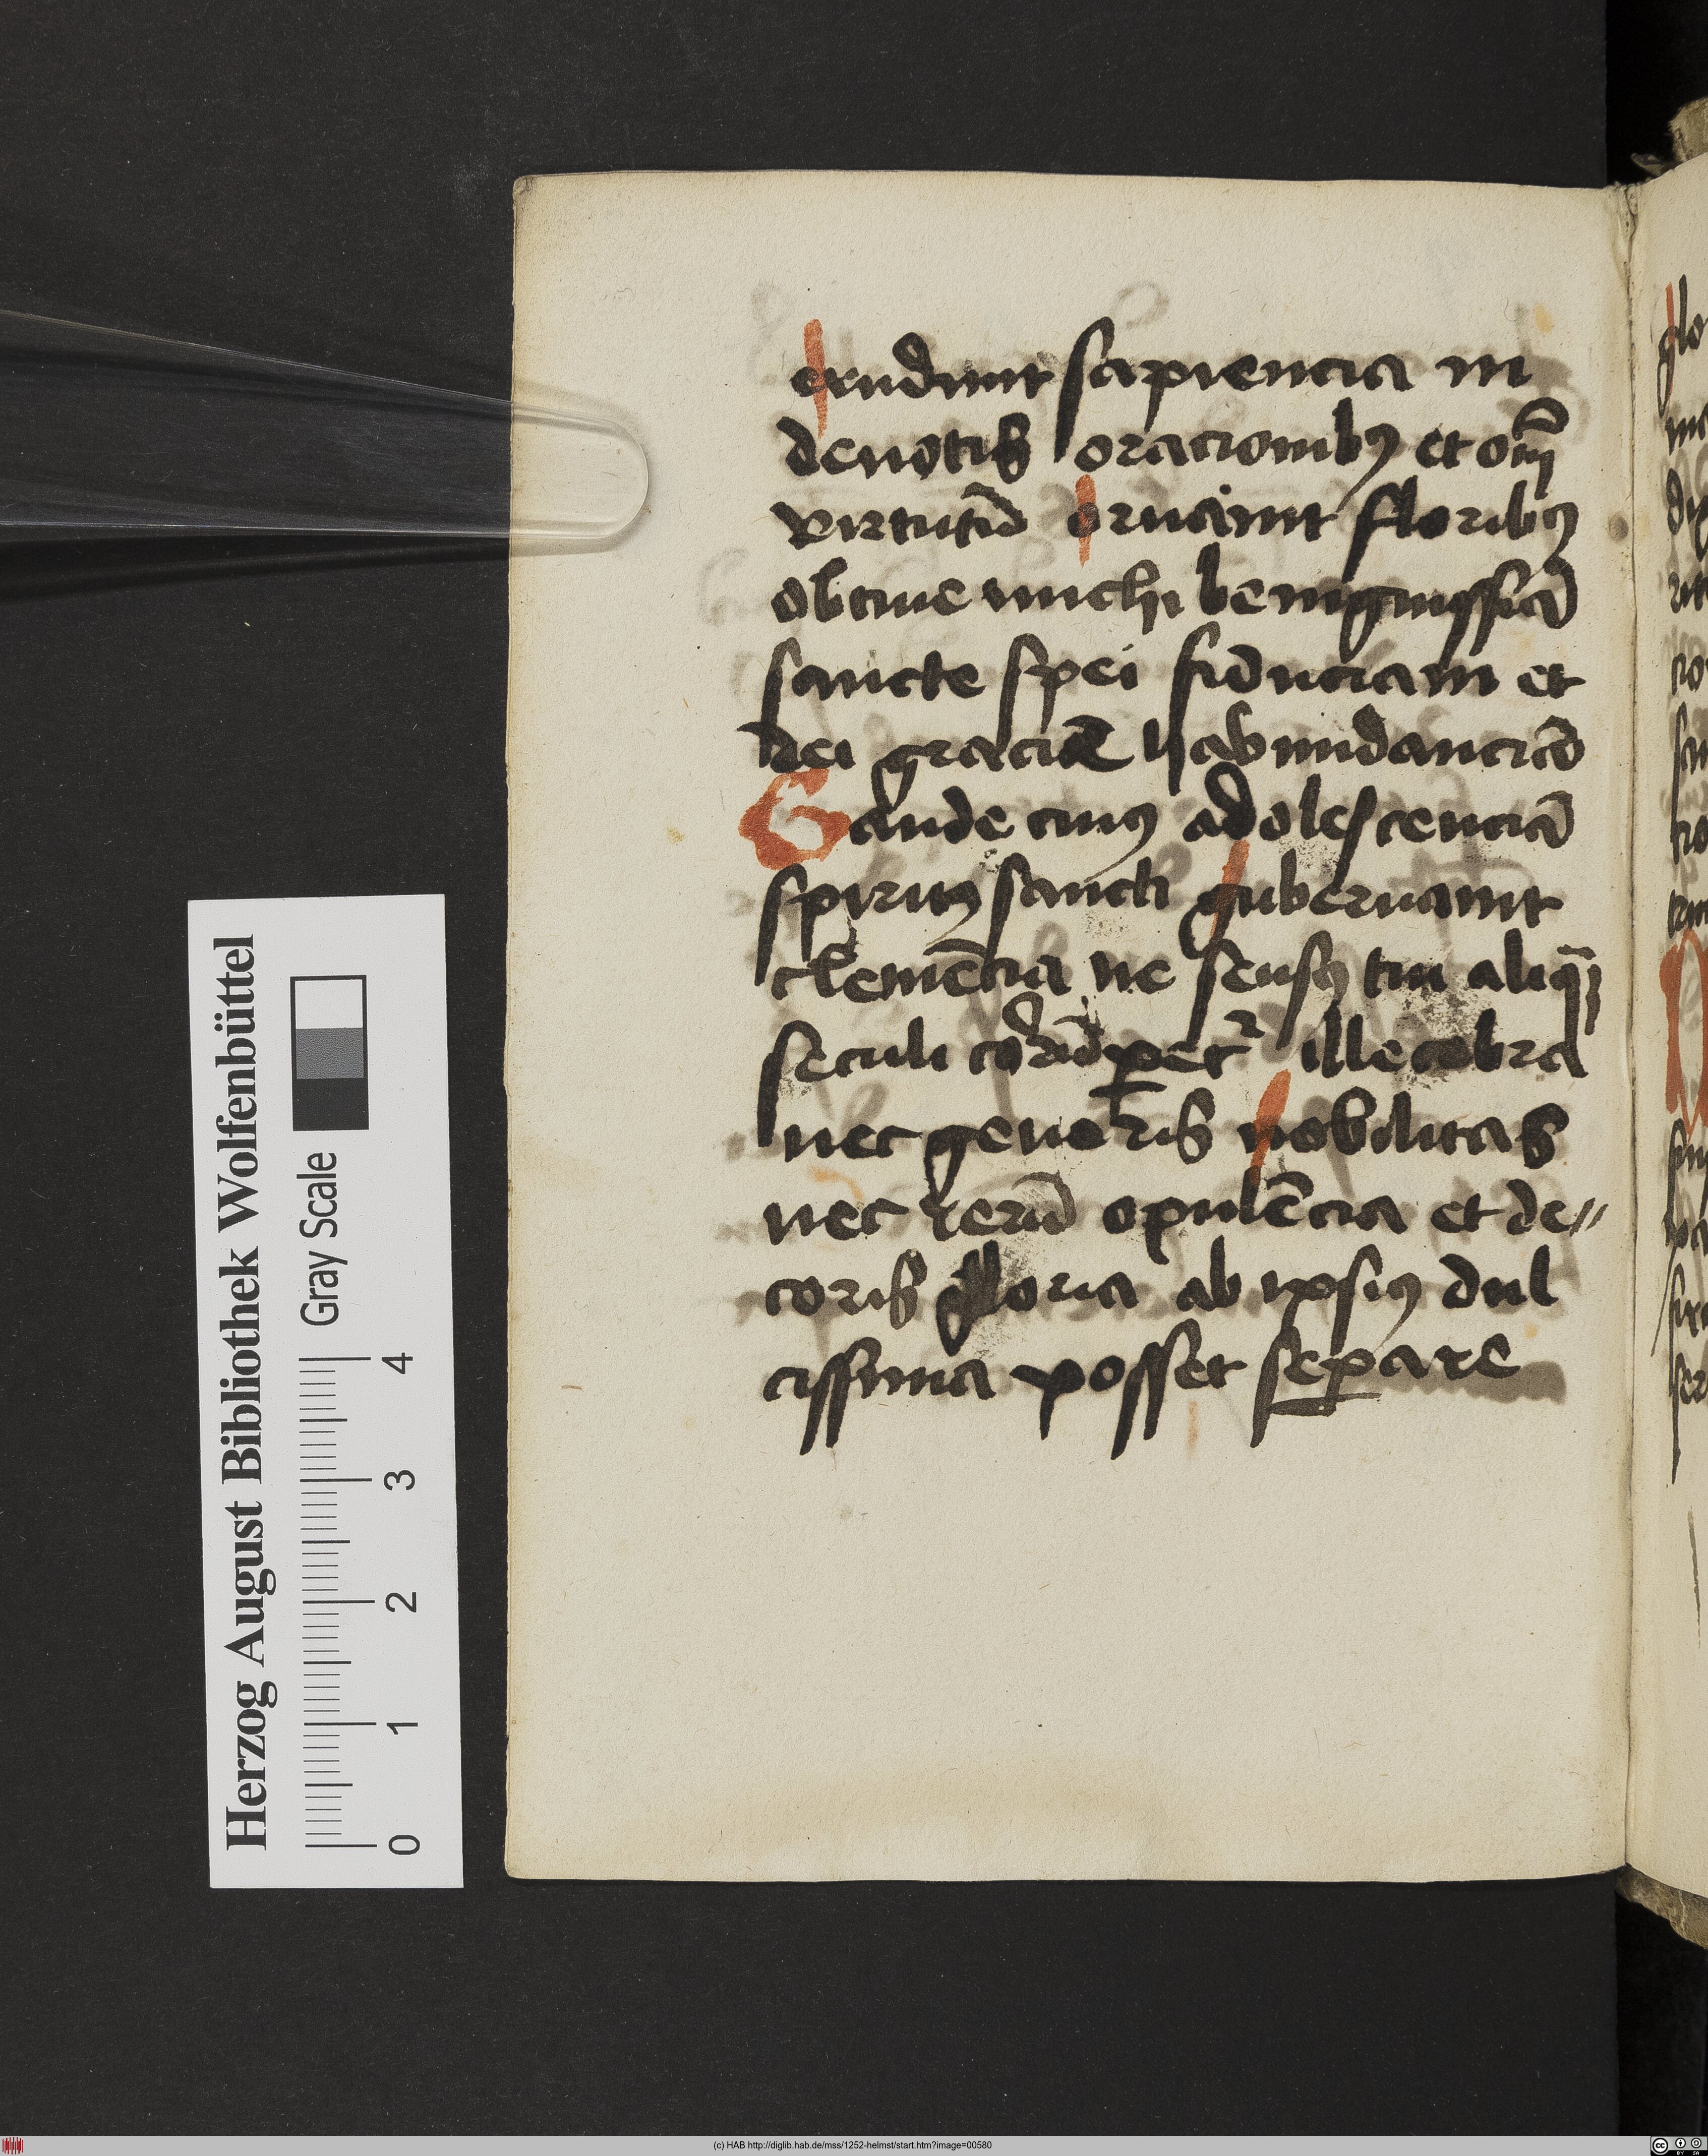 erudiuit sapiencia in
deuotis oracionibꝯ et oim̄
virtutū ornauit floribꝯ
obtine michi benignissiā
sancte spei fiduciam et
dei gracie habundanciā
Gaude cuiꝯ adolescenciā
spiritꝯ sancti gubernauit
clemēcia ne sensꝯ tui aliq̄
seculi illecebra
nec generis nobilitas
nec rerū opulēcia et de〃
coris gloria ab ipsiꝯ dul
cissima posset seꝑare
Herzog August Bibliothek Wolfenbüttel
Gray Scale
0 1 2 3 4
(c) HAB http://diglib.hab.de/mss/1252-helmst/start.htm?image=00580